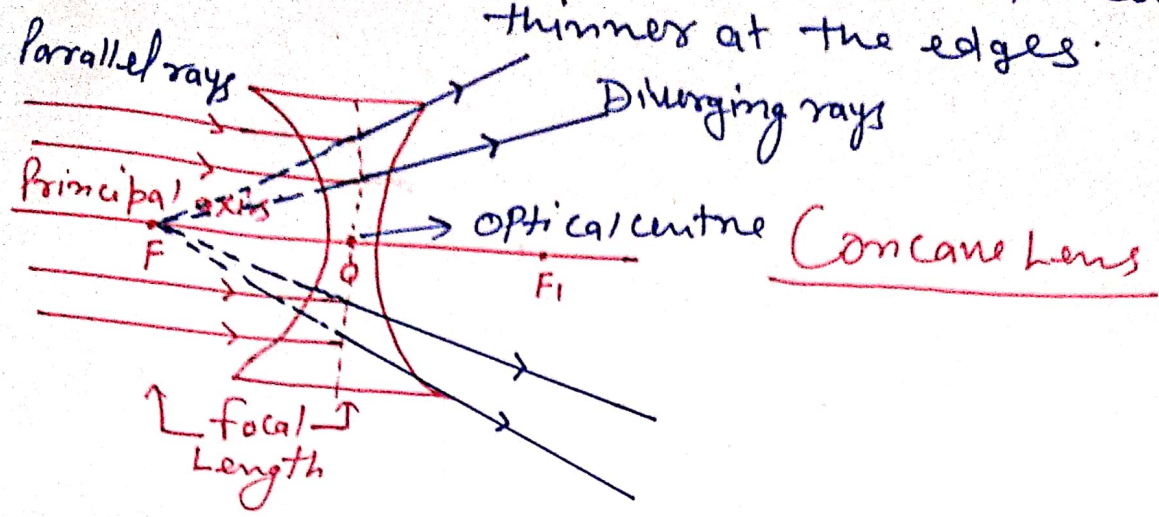 thinner at the edges.
Parallel rays
Diverging rays
Principal axis
Optical centre
Concave Lens
F
O
F1
focal
Length